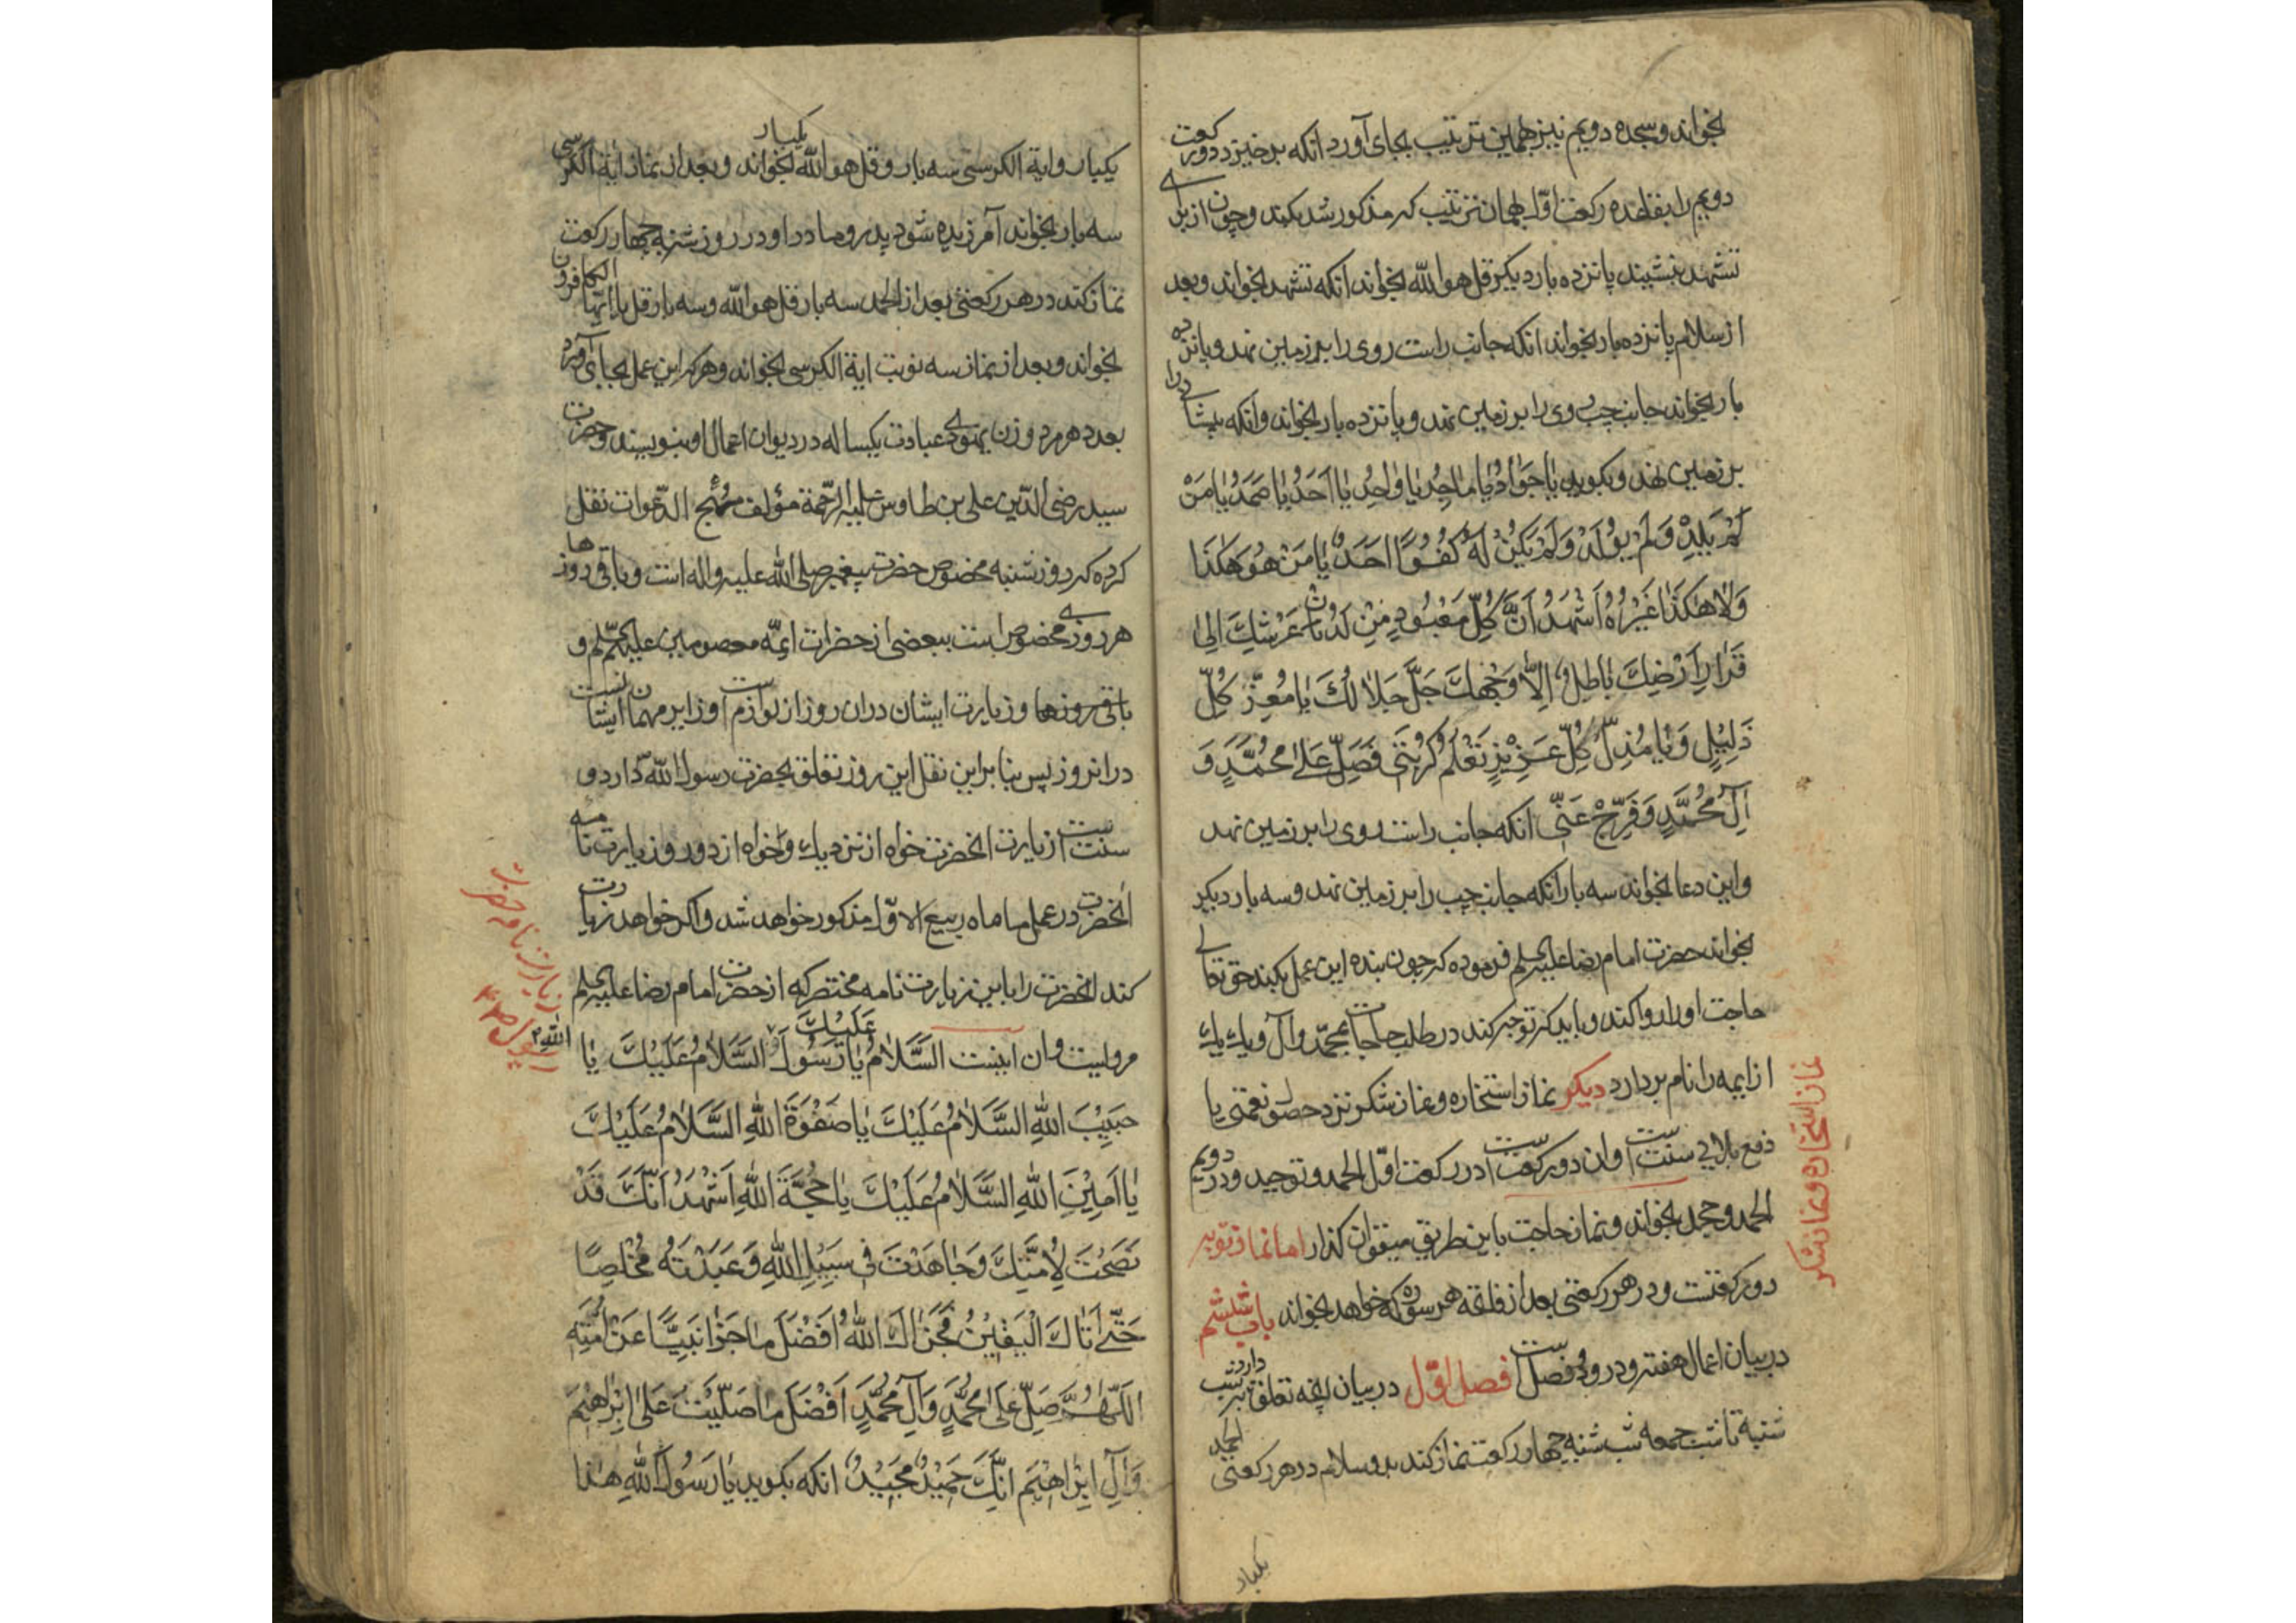 بخواند و سجده دویم نیز بهمین ترتیب بجای آورد انکه برخیزد و رکعت
دویم را بقاعده رکعت اوّل بهمان ترتیب که مذکور شد بکند و چون از برای
تشهد بنشیند پانزده بار دیکر قل هو اللّه بخواند انکه تشهد بخواند و بعد
از سلام پانزده بار بخواند انکه جانب راست روی را بر زمین نهد و پانزده
بار بخواند جانب چپ روی را بر زمین نهد و پانزده بار بخواند وانکه پیشانی را
بر زمین نهد و بکوید یا جَوٰادُ یٰا مٰاجِدُ یٰا وٰاحِدُ یٰا اَحَدُ یٰا صَمَدُ یٰا مَنْ
لَمْ یَلِدْ وَلَمْ یُولَدْ وَلَمْ یَکُنْ لَهُ کُفُوًا اَحَدٌ یٰا مَنْ هُوَ هٰکَذَا
وَلاٰ هٰکَذٰا غَیْرُهُ اَشْهَدُ اَنَّ کُلَّ مَعْبُودٍ مِنْ لَدُنْ عَرْشِكَ اِلیٰ
قَرٰارِ اَرْضِكَ بٰاطِلٌ اِلّٰا وَجْهَكَ جَلَّ جَلاٰلُكَ یٰا مُعِزَّ کُلِّ
ذَلِیْلٍ وَ یٰا مُذِلَّ کُلِّ عَزِیْزٍ تَعْلَمُ کُرْبَتَی فَصَلِّ عَلیٰ مُحَمَّدٍ وَ
آلِ مُحَمَّدٍ وَ فَرِّجْ عَنّی انکه جانب راست روی را بر زمین نهد
و این دعا بخواند سه بار انکه جانب چپ را بر زمین نهد و سه بار دیکر
بخواند حضرت امام رضا علیه السلم فرموده که چون بنده این عمل بکند حق تعالی
حاجت او را روا کند و باید که توجه کند در طلب حاجات بمحمّد وآل و یك یك
از ایمه را نام بردارد دیکر نماز استخاره و نماز شکر نزد حصول نعمتی یا
دفع بلائی سنّت است و ان دو رکعت است در رکعت اوّل الحمد و توحید و در دویم
الحمد و جحد بخواند و نماز حاجت باین طریق میتوان کذارد اما نماز توبه
دو رکعتست و در هر رکعتی بعد از فاتحه هر سوره که خواهد بخواند باب ششم
در بیان اعمال هفته و درو دو فصل است فصل اوّل در بیان آنچه تعلق دارد بشب
شنبه تا شب جمعه شب شنبه چهار رکعت نماز کند بدو سلام در هر رکعتی الحمد
یکبار
نماز استخاره و نماز شکر
یکبار و ایة الکرسی سه بار و قل هو اللّه یکبار بخواند و بعد از نماز ایة الکرسی
سه بار بخواند آمرزیده شود پدر و مادر او و در روز شنبه چهار رکعت
نماز کند در هر رکعتی بعد از الحمد سه بار قل هو اللّه و سه بار قل یا ایّها الکافرون
بخواند و بعد از نماز سه نوبت ایة الکرسی بخواند و هر که این عمل بجای آورد
بعدد هر مرد و زن یهودی عبادت یکساله در دیوان اعمال او بنویسند و حضرت
سید رضی الدّین علی بن طاوس علیه الرّحمة مؤلف مُهَج الدّعوات نقل
کرده که روز شنبه مخصوص حضرت پیغمبر صلی اللّه علیه واله است و باقی روزها
هر روزی مخصوص است ببعضی از حضرات ایمّه معصومین علیهم السّلم و
باقی روزها و زیارت ایشان دران روز از لوازم است و زایر مهمان ایشانست
درانروز پس بنا براین نقل این روز تعلق بحضرت رسول اللّه دارد و
سنت است زیارت انحضرت خواه از نزدیك و خواه از دور و زیارت نامه
انحضرت در عمل ماه ربیع الاوّل مذکور خواهد شد و اکر خواهد زیارت
کند انحضرت را باین زیارت نامه مختصر که از حضرت امام رضا علیه السلم
مرویست و ان اینست السَّلاٰمُ عَلَیْكَ یٰا رَسُولَ اللّٰهِ السَّلاٰمُ عَلَیْكَ یٰا
حَبِیْبَ اللّٰهِ السَّلاٰمُ عَلَیْكَ یٰا صَفْوَةَ اللّٰهِ السَّلاٰمُ عَلَیْكَ
یٰا اَمِیْنَ اللّٰهِ السَّلاٰمُ عَلَیْكَ یٰا حُجَّةَ اللّٰهِ اَشْهَدُ اَنَّكَ قَدْ
نَصَحْتَ لِاُمَّتِكَ وَ جٰاهَدْتَ فِی سَبِیْلِ اللّٰهِ وَ عَبَدْتَهُ مُخْلِصًا
حَتّیٰ اَتٰاكَ الْیَقِیْنُ فَجَزٰاكَ اللّٰهُ اَفْضَلَ مٰا جَزٰا نَبِیًّا عَنْ اُمَّتِهِ
اَللّٰهُمَّ صَلِّ عَلیٰ مُحَمَّدٍ وَآلِ مُحَمَّدٍ اَفْضَلَ مٰا صَلَّیْتَ عَلیٰ اِبْرٰاهِیْمَ
وَآلِ اِبْرٰاهِیْمَ اِنَّكَ حَمِیْدٌ مَجِیْدٌ انکه بکوید یٰا رَسُولَ اللّٰهِ هٰذَا
زیارت نامه حضرت
رسول